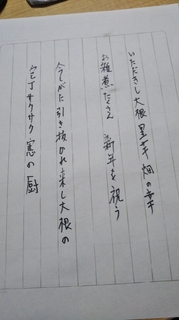 いただきし大根里芋畑の幸
お雑煮にたさん 新年を祝う
今しがた引き抜かれ来し大根の
包丁サクサク窓の厨